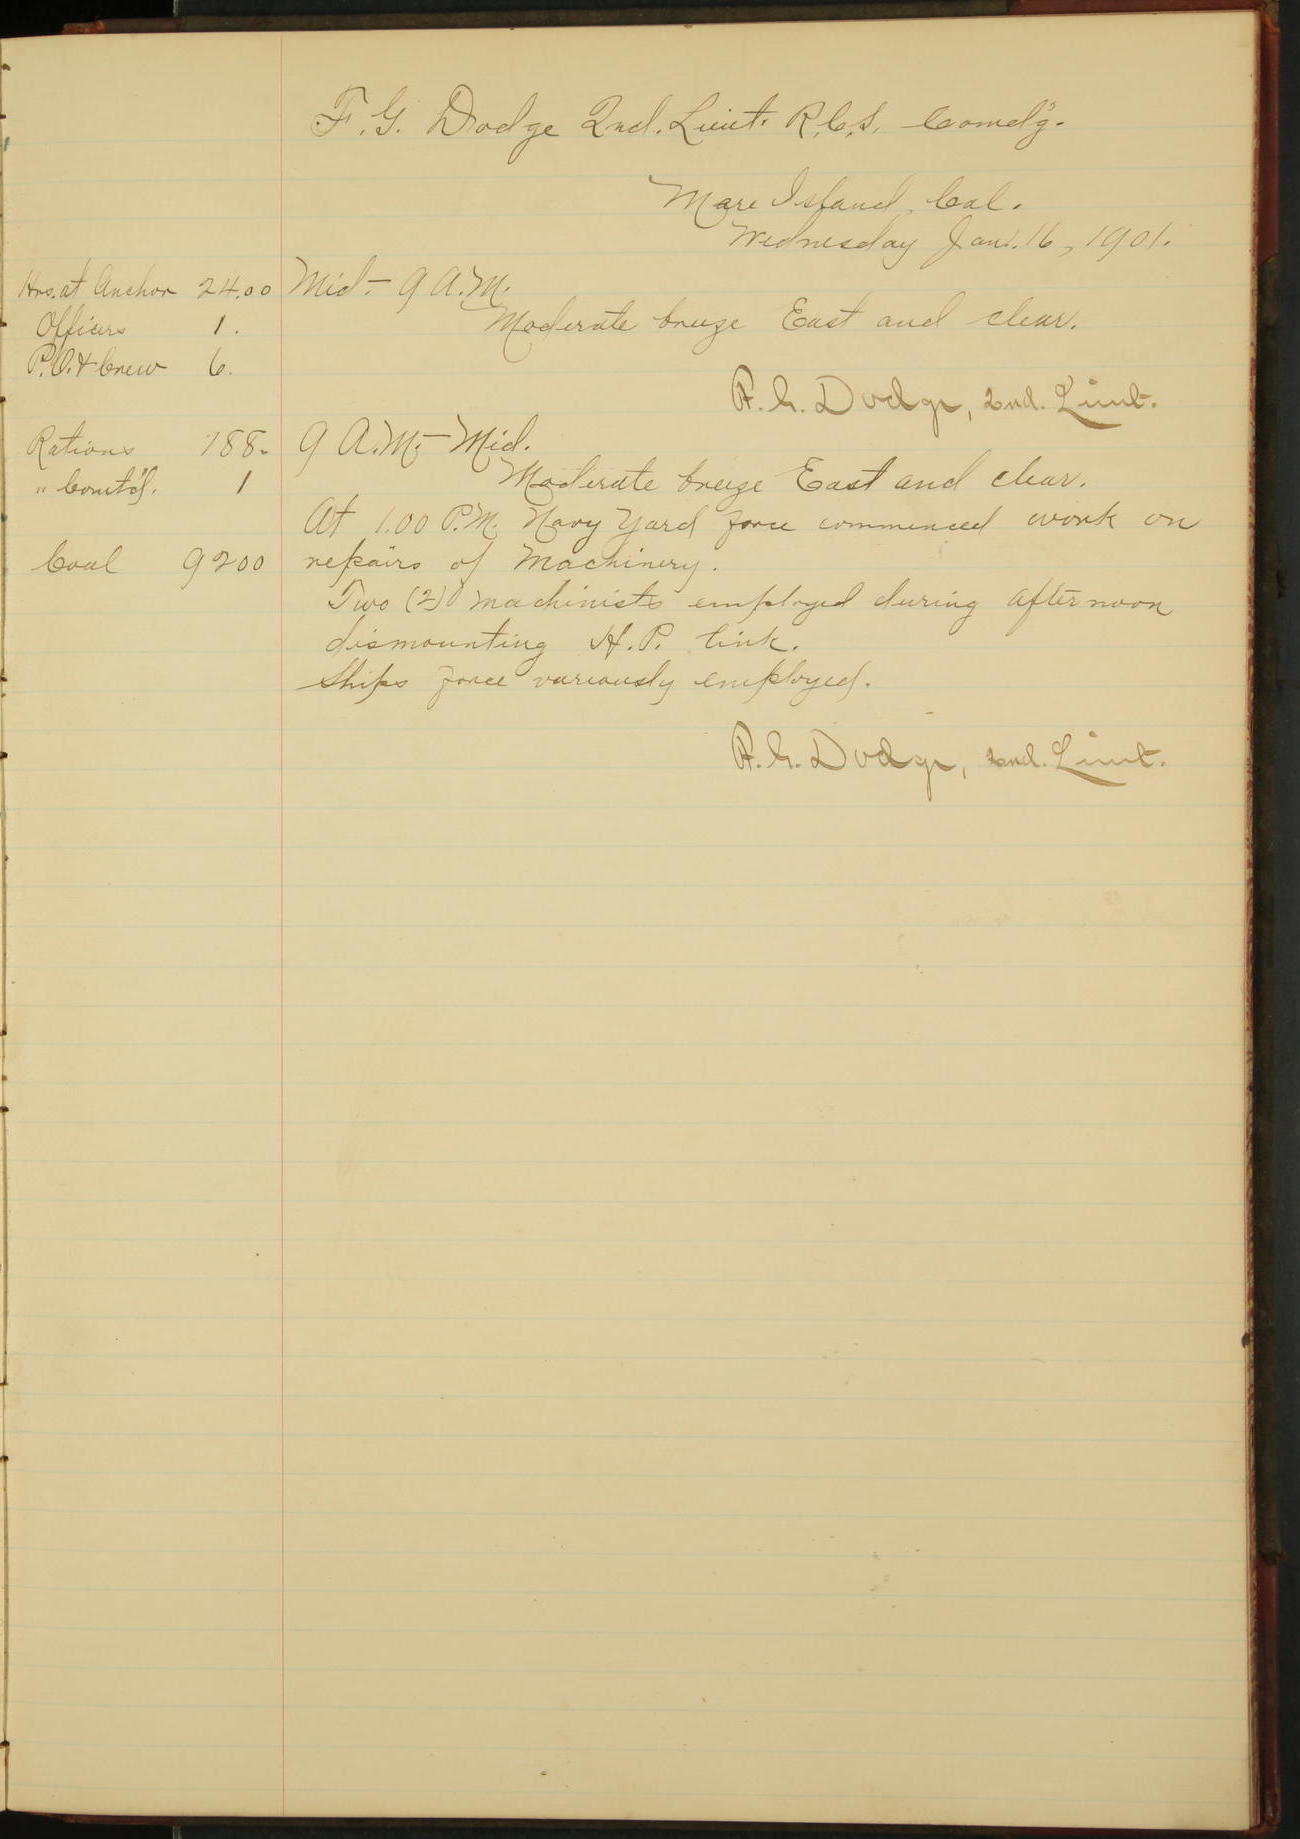 F. G. Dodge 2nd. Lieut. R.C.S. Comd'g.
Mare Island, Cal.
Wednesday Jan. 16, 1901.
Hrs. at Anchor 24.00
Mid - 9 A.M.
Officers 1.
Moderate breeze East and clear.
P.O. & Crew 6.
F. G. Dodge, 2nd. Lieut.
Rations 188.
9 A.M. - Mid.
" Comt'd. 1
Moderate breeze East and clear.
At 1.00 P.M. Navy Yard force commenced work on
Coal 9200
repairs of Machinery.
Two (2) machinists employed during afternoon
dismounting H.P. link.
Ships force variously employed.
F. G. Dodge, 2nd. Lieut.